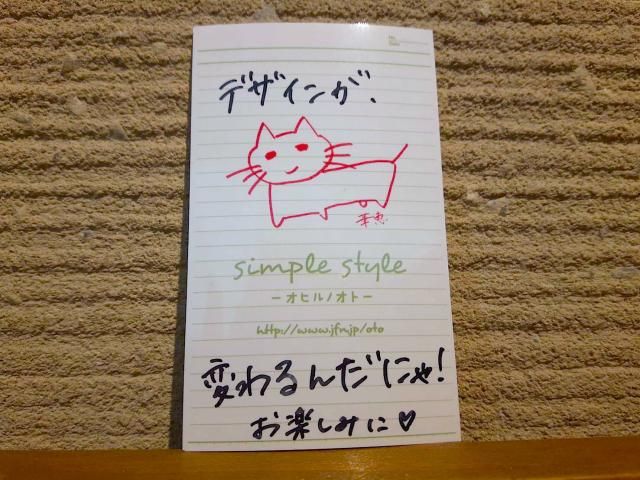 デザインが、
亜恵
simple style
－オヒルノオト－
http://www.jfn.jp/oto
変わるんだにゃ!
お楽しみに♡